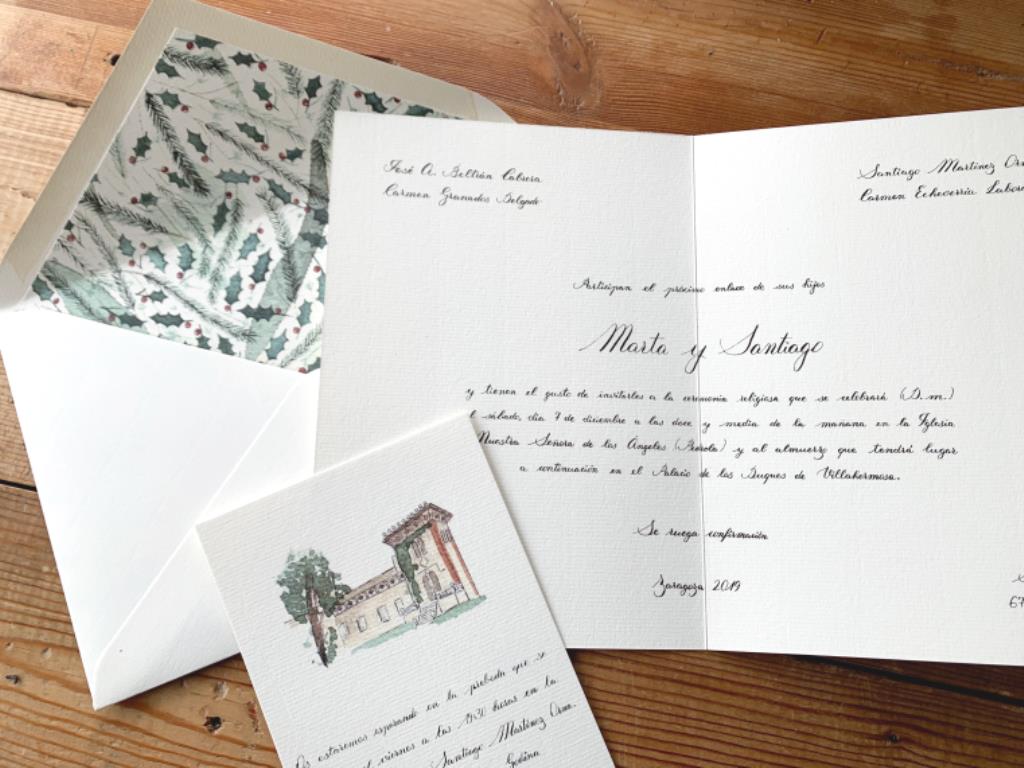 José A. Beltrán Cabrera
Carmen Granados Delgado
Santiago Martínez
Carmen Echeverría
Participan el próximo enlace de sus hijos
Marta y Santiago
y tienen el gusto de invitarles a la ceremonia religiosa que se celebrará (D.m.)
sábado, día 7 de diciembre a las doce y media de la mañana en la Iglesia
Nuestra Señora de los Ángeles y al almuerzo que tendrá lugar
a continuación en el Palacio de los Duques de Villahermosa.
Se ruega confirmación
Zaragoza 2019
67
Os estaremos esperando en la preboda que se
el viernes a las 19:30 horas en la
Santiago Martínez